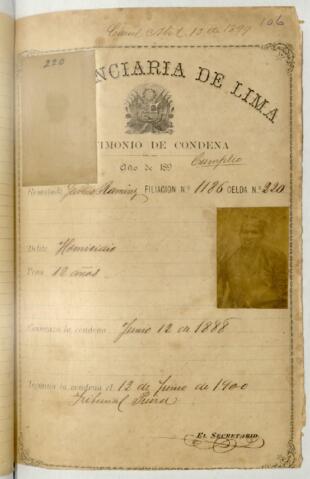 Abril 13 de 1899
106
220
NCIARIA DE LIMA
TIMONIO DE CONDENA
Año de 189
Cumplio
Rematado Ramirez FILIACION N.º 1186 CELDA N.º 220
Delito Homicidio
Pena 12 años.
Comienza la condena Junio 12 de 1888
Termina la condena el 12 de Junio de 1900
Tribunal Piura
EL SECRETARIO